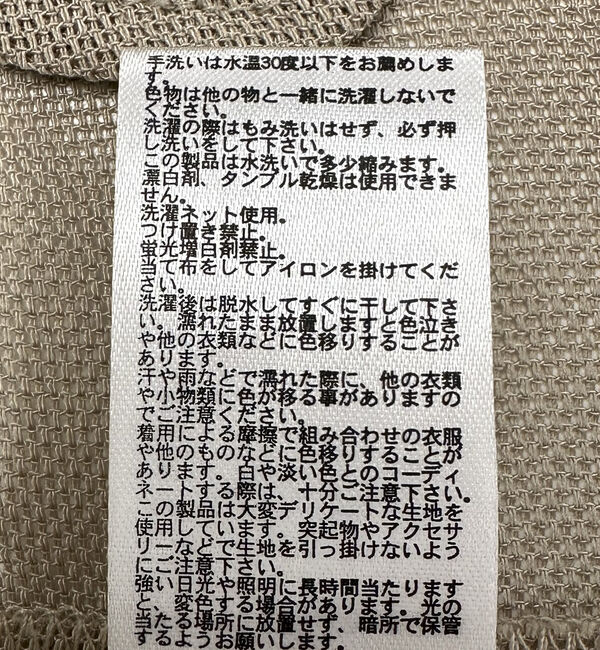 手洗いは水温30度以下をお薦めしま
す。
色物は他の物と一緒に洗濯しないで
ください。
洗濯の際はもみ洗いはせず、必ず押
し洗いをして下さい。
この製品は水洗いで多少縮みます。
漂白剤、タンブル乾燥は使用できま
せん。
洗濯ネット使用。
つけ置き禁止。
蛍光増白剤禁止。
当て布をしてアイロンを掛けてくだ
さい。
洗濯後は脱水してすぐに干して下さ
い。濡れたまま放置しますと色泣き
や他の衣類などに色移りすることが
あります。
汗や雨などで濡れた際に、他の衣類
や小物類に色が移る事がありますの
でご注意ください。
着用による摩擦で組み合わせの衣服
や他のものなどに色移りすることが
あります。白や淡い色とのコーディ
ネートする際は、十分ご注意下さい。
この製品は大変デリケートな生地を
使用しています。突起物やアクセサ
リーなどで生地を引っ掛けないよう
にご注意下さい。
強い日光や照明に長時間当たります
と、変色する場合があります。光の
当たる場所に放置せず、暗所で保管
するようお願いします。